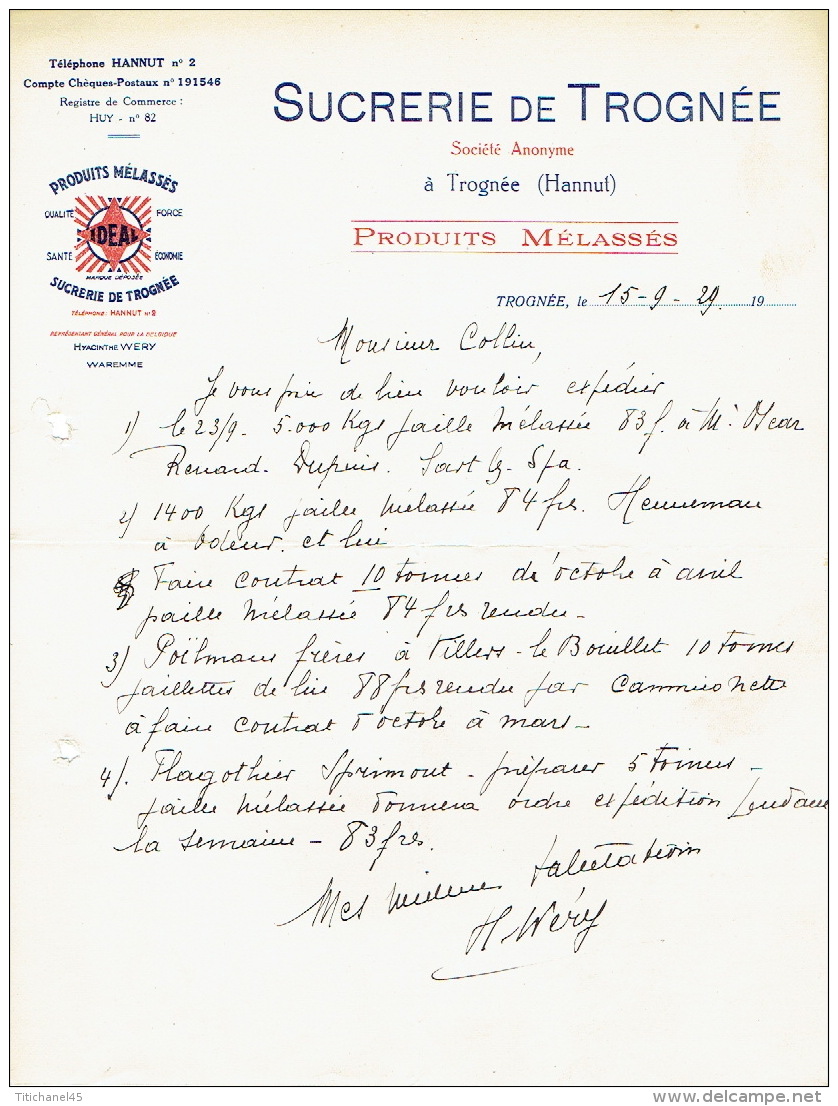 Téléphone HANNUT nº 2
Compte Chèques-Postaux nº 191546
Registre de Commerce :
HUY - nº 82
PRODUITS MÉLASSÉS
QUALITÉ FORCE
IDEAL
SANTÉ ÉCONOMIE
MARQUE DÉPOSÉE
SUCRERIE DE TROGNÉE
TÉLÉPHONE : HANNUT Nº 2
REPRÉSENTANT GÉNÉRAL POUR LA BELGIQUE
HYACINTHE WERY
WAREMME
SUCRERIE DE TROGNÉE
Société Anonyme
à Trognée (Hannut)
PRODUITS MÉLASSÉS
TROGNÉE, le 15-9-29. 19
Monsieur Collin,
Je vous prie de bien vouloir expédier
1) le 23/9. 5.000 Kgs paille mélassée 83 f. à Mr Oscar
Renard-Dupuis. Sart lz-Spa.
2) 1400 Kgs paille mélassée 84 frs. Henneman
à Odeur. et lui
Faire contrat 10 tonnes de octobre à avril
paille mélassée 84 frs rendu-
3) Poëlmans frères à Villers-le Bouillet 10 tonnes
paillettes de lin 88 frs rendu par camionnette
à faire contrat d octobre à mars-
4). Flagothier Sprimont - préparer 5 tonnes -
paille mélassée donnera ordre expédition pendant
la semaine - 83 frs.
Mes meilleures salutations
H Wéry
Titichanel45
www.delcampe.net